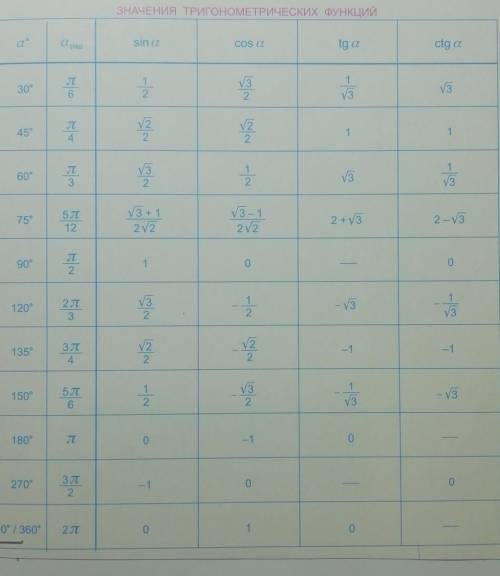 ЗНАЧЕНИЯ ТРИГОНОМЕТРИЧЕСКИХ ФУНКЦИЙ
α° α рад sin α cos α tg α ctg α
30° π/6 1/2 √3/2 1/√3 √3
45° π/4 √2/2 √2/2 1 1
60° π/3 √3/2 1/2 √3 1/√3
75° 5π/12 √3+1/2√2 √3−1/2√2 2+√3 2−√3
90° π/2 1 0 — 0
120° 2π/3 √3/2 −1/2 −√3 −1/√3
135° 3π/4 √2/2 −√2/2 −1 −1
150° 5π/6 1/2 −√3/2 −1/√3 −√3
180° π 0 −1 0 —
270° 3π/2 −1 0 — 0
0° / 360° 2π 0 1 0 —